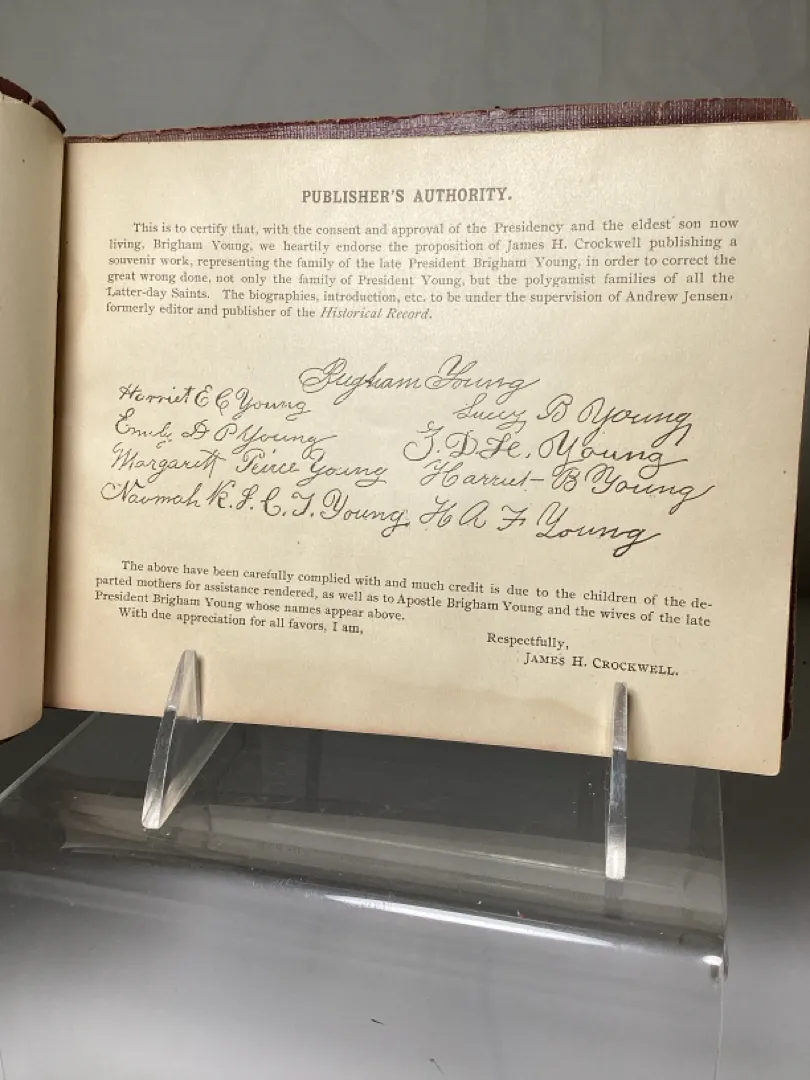 PUBLISHER'S AUTHORITY.
This is to certify that, with the consent and approval of the Presidency and the eldest son now
living, Brigham Young, we heartily endorse the proposition of James H. Crockwell publishing a
souvenir work, representing the family of the late President Brigham Young, in order to correct the
great wrong done, not only the family of President Young, but the polygamist families of all the
Latter-day Saints. The biographies, introduction, etc. to be under the supervision of Andrew Jensen,
formerly editor and publisher of the Historical Record.
Brigham Young
Harriet E C Young
Lucy B Young
Emily D P Young
Z. D. H. Young
Margarett Peirce Young
Harriet B Young
Naomah K. J. C. T. Young
H A F Young
The above have been carefully complied with and much credit is due to the children of the de-
parted mothers for assistance rendered, as well as to Apostle Brigham Young and the wives of the late
President Brigham Young whose names appear above.
With due appreciation for all favors, I am,
Respectfully,
JAMES H. CROCKWELL.